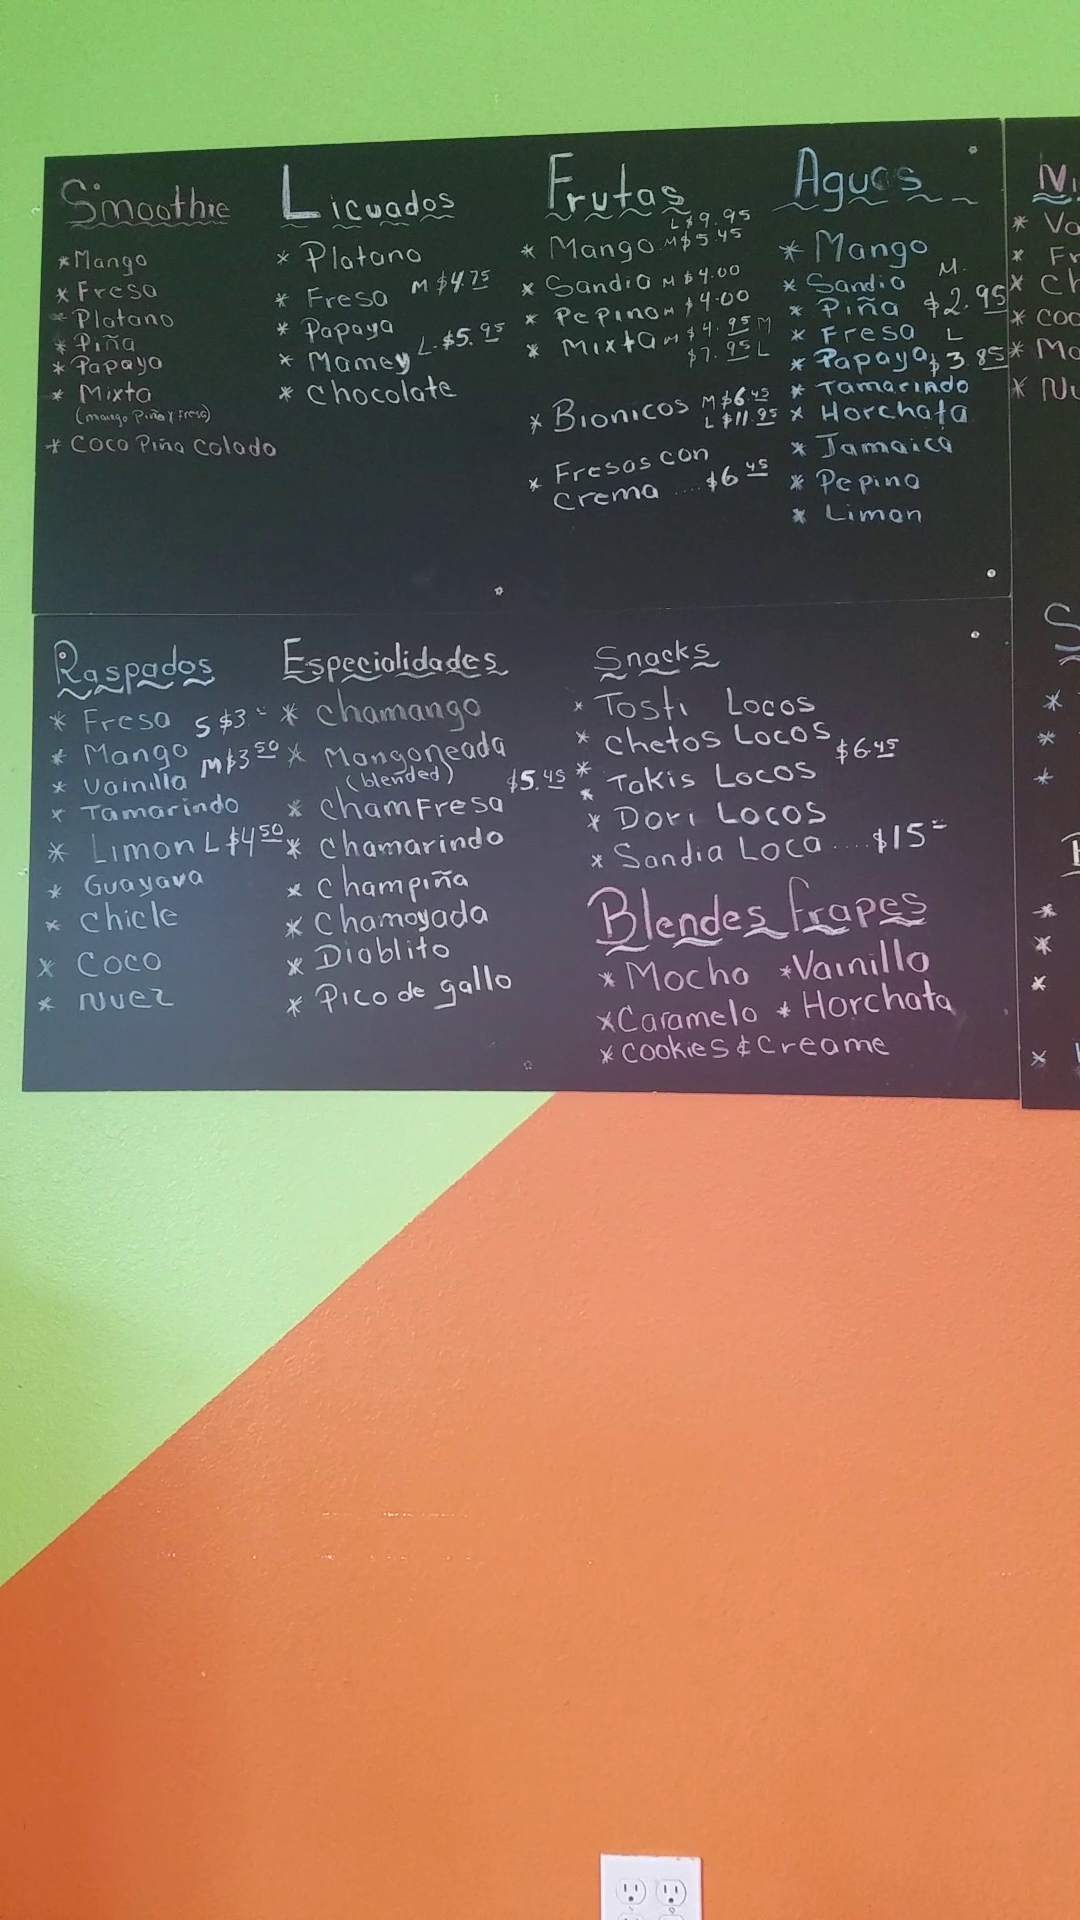 Smoothie
* Mango
* Fresa
* Platano
* Piña
* Papaya
* Mixta
(mango Piña y Fresa)
* Coco Pina Colado
Licuados
* Platano
* Fresa M $4.75
* Papaya
* Mamey L. $5.95
* Chocolate
Frutas
L $9.95
* Mango M $5.45
* Sandia M $4.00
* Pepino M $4.00
* Mixta M $4.95 M
$7.95 L
* Bionicos M $6.45
L $11.95
* Fresas con
Crema .... $6.45
Aguas
* Mango
M.
* Sandia
* Piña $2.95
* Fresa L
* Papaya $3.85
* Tamarindo
* Horchata
* Jamaica
* Pepino
* Limon
Raspados
* Fresa S $3.-
* Mango M $3.50
* Vainilla
* Tamarindo
* Limon L $4.50
* Guayava
* Chicle
* Coco
* Nuez
Especialidades
* Chamango
* Mangoneada
(blended) $5.45
* ChamFresa
* Chamarindo
* Champiña
* Chamoyada
* Diablito
* Pico de gallo
Snacks
* Tosti Locos
* Chetos Locos $6.45
* Takis Locos
* Dori Locos
* Sandia Loca .... $15=
Blendes frapes
* Mocha * Vainilla
* Caramelo * Horchata
* Cookies & Creame